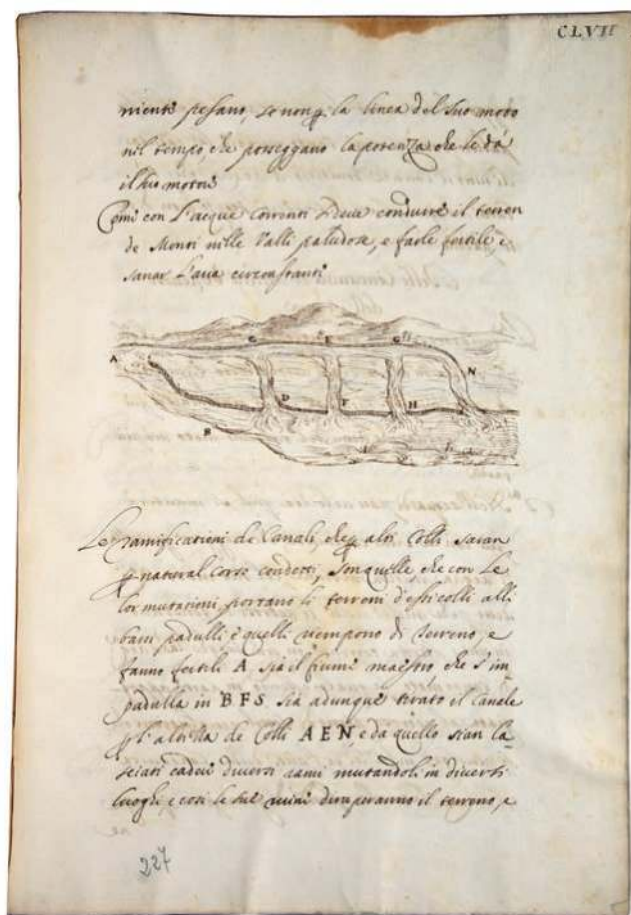 CLVII
niente pesano, se non p la linea del suo moto
nil tempo, che posseggano la potenza che le dà
il suo motore
Come con l'acque correnti si deve condurre il terren
de Monti nille Valli paludose, e farle fertile e
sanar l'aria circonstanti
A
C
E
G
N
D
F
H
B
Le ramificationi de Canali, che p alti Colli saran
p natural corso condotti, son quelle, che con le
lor mutationi portano li terreni d'essi colli alli
bassi padulli, e quelli riempono di terreno, e
fanno fertili A sia il fiume maestro, che s'im
padulla in BFS sia adunque tirato il canale
p l'altezza de Colli AEN, e da quello sian la
sciati cadere diversi rami mutandoli in diversi
luoghi, e cosi le sue ruine dirupperanno il terreno, e
227